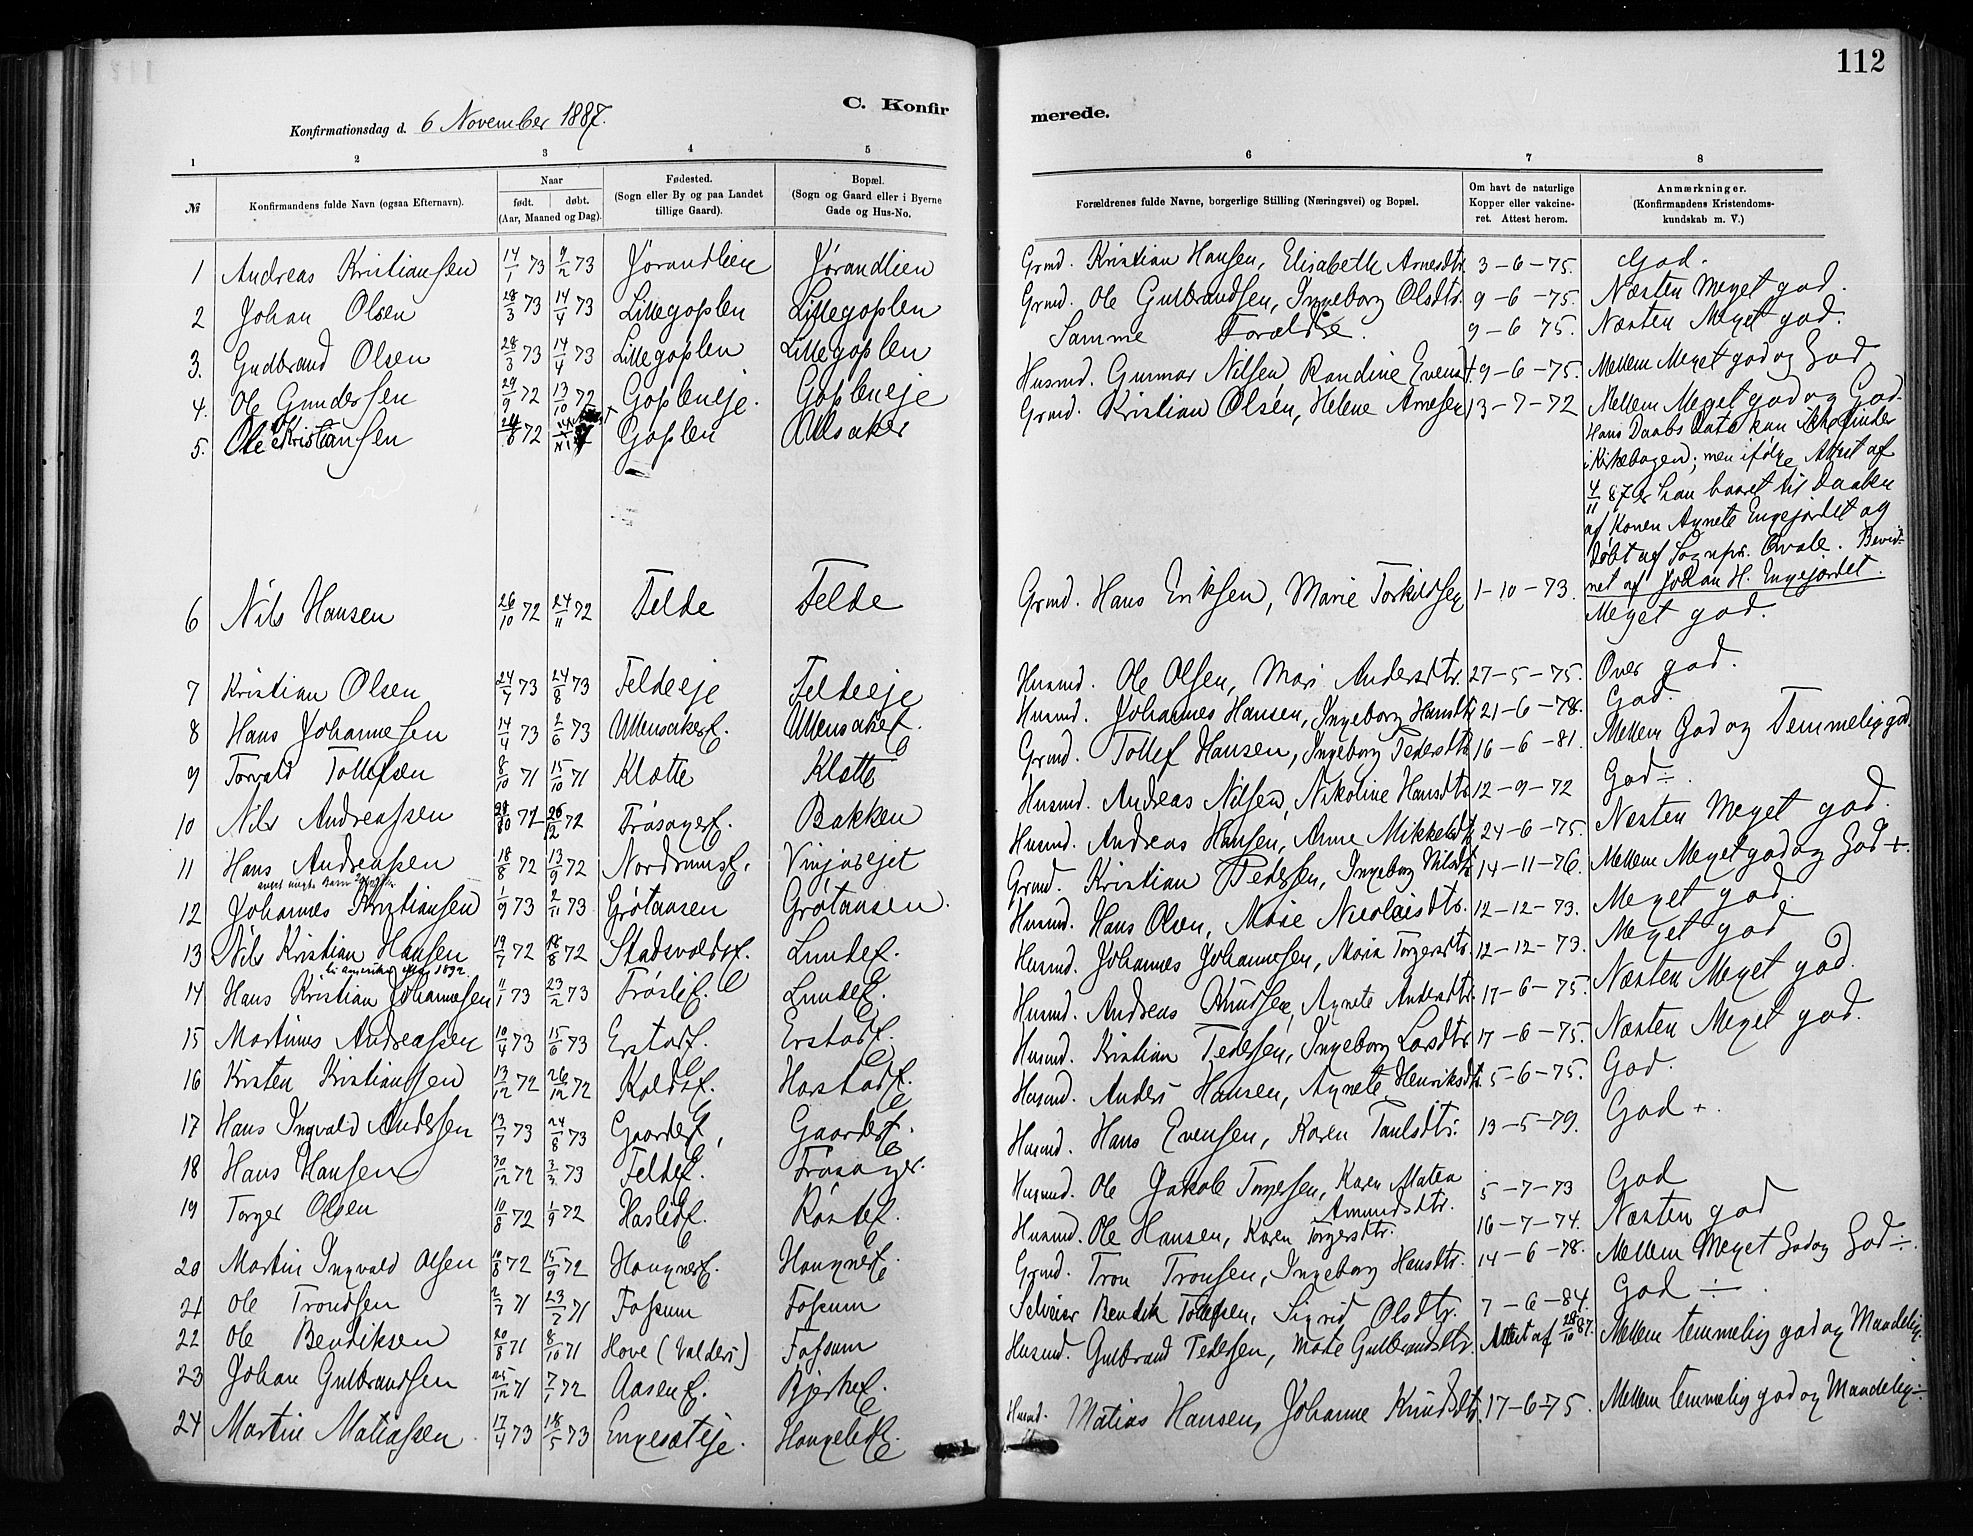 112
C. Konfir
merede.
Konfirmationsdag d. 6 November 1887.
1 2 3 4 5 6 7 8
№ Konfirmandens fulde Navn (ogsaa Efternavn). Naar født. døbt. (Aar, Maaned og Dag). Fødested. (Sogn eller By og paa Landet tillige Gaard). Bopæl. (Sogn og Gaard eller i Byerne Gade og Hus-No. Forældrenes fulde Navne, borgerlige Stilling (Næringsvei) og Bopæl. Om havt de naturlige Kopper eller vakcineret. Attest herom. Anmærkninger. (Konfirmandens Kristendomskundskab m. V.)
1 Andreas Kristiansen 14/1 73 9/2 73 Jørandlien Jørandlien Grmd. Kristian Hansen, Elisabeth Arnesdtr. 3-6-75. God.
2 Johan Olsen 28/3 73 14/4 73 Lillegoplen Lillegoplen Grmd. Ole Gulbrandsen, Ingeborg Olsdtr. 9-6-75. Næsten Meget god.
3. Gudbrand Olsen 28/3 73 14/4 73 Lillegoplen Lillegoplen Samme Forældre. 9-6 75. Næsten Meget god.
4. Ole Gundersen 29/9 72 13/10 72 Gopleneje. Gopleneje Husmd. Gunnar Nilsen Randine Evensd 9-6-75. Mellem Meget god og God
5. Ole Kristiansen 72 Goplen Ullsaker Grmd. Kristian Olsen, Helene Arnesen 13-7-72 Mellem Meget god og God.
Hans Daabs Data kan ikke finder
i Kirkebogen; men ifølge Attest af
4/11 87 er han baaret til Daaben
af Konen Agnete Engejordet og
døbt af Sognpr. Qvale. Bevid-
net af Johan H. Engejordet.
6 Nils Hansen 26/10 72 24/11 72 Felde Felde Grmd. Hans Eriksen, Marie Torkildsen 1-10-73. Meget god.
7 Kristian Olsen 24/7 73 24/8 73 Feldeeje Feldeeje Husmd. Ole Olsen, Mari Andersdtr. 27-5-75. Over god.
8 Hans Johannesen 14/4 73 2/6 73 Ullensakerf. Ullensakef. Husmd. Johannes Hansen, Ingeborg Hansdtr 21-6-78. God.
9 Torvald Tollefsen 8/10 71 15/10 71 Kløtte Kløtte Grmd. Tollef Hansen, Ingeborg Pedersdtr. 16-6-81. Mellem God og Temmelig god
10 Nils Andreassen 72 72 Frøsagerf. Bakken Husmd. Andreas Nilsen, Nikoline Hansdtr. 12-9-72 God÷.
11 Hans Andreassen 18/8 72 13/9 72 Nordrumsf. Vinjarejet Husmd. Andreas Hansen, Anne Mikkelsdtr. 24-6-75. Næsten Meget god.
12 Johannes Kristiansen 1/9 73 2/11 73 Grøtaasen Grøtaasen. Grmd. Kristian Pedersen, Ingeborg Nilsdtr 14-11-76. Mellem Meget god og God +.
13 Nils Kristian Hansen 19/7 72 18/8 72 Stadsvoldsf. Lundef. Husmd. Hans Olsen, Marie Nicolaisdtr. 12-12-73. Meget god.
til Amerika Mai 1892.
14 Hans Kristian Johannesen 11/1 73 23/2 73 Frøslif. Lundef. Husmd. Johannes Johannesen, Maria Torgersdtr. 12-12-73. Meget god
15 Martinus Andreassen 10/4 73 15/6 73 Erstadf. Erstadf. Husmd. Andreas Knudsen, Agnete Andersdtr. 17-6-75. Næsten Meget god.
16 Kristen Kristianssen 13/12 72 26/12 72 Koldsf. Harstadf. Husmd. Kristian Pedersen, Ingeborg Larsdtr. 17-6-75. Næsten Meget god.
17 Hans Ingvald Andersen 13/7 73 24/8 73 Gaardef. Gaardef. Husmd. Anders Hansen, Agnete Henriksdtr. 5-6-75. God.
18 Hans Hansen 30/12 72 3/3 73 Feldef. Frøsager. Husmd. Hans Evensen, Karen Paulsdtr. 13-5-79. God +.
19 Torger Olsen 10/8 72 1/9 72 Haslief. Røstef. Husmd. Ole Jakob Torgersen, Karen Matea Amundsdtr. 5-7-73 God
20 Martin Ingvald Olsen 10/8 72 15/9 72 Haugnerf. Haugnerf. Husmd. Ole Hansen, Karen Torgersdtr. 16-7-74. Næsten god
21 Ole Trondsen 2/7 71 23/7 71 Fossum Fossum Grmd. Tron Tronsen, Ingeborg Hansdtr. 14-6-78. Mellem Meget God og God ÷.
22 Ole Bendiksen 20/8 71 8/10 71 Hove (Valders) Fossum Selveier Bendik Tollefsen, Sigrid Olsdtr. 7-6-84. God ÷.
23 Johan Gulbrandsen 25/12 71 7/1 72 Aasenf. Bjerkef. Husmd. Gulbrand Pedersen, Mate Gulbrandsdtr. Attest af 28/10 87. Mellem temmelig god og Maadelig.
24 Martin Matiassen 17/4 73 18/5 73 Engesæteje. Haugeledf. Husmd. Matias Hansen, Johanne Knudsdtr. 17-6-75. Mellem temmelig god og Maadelig÷